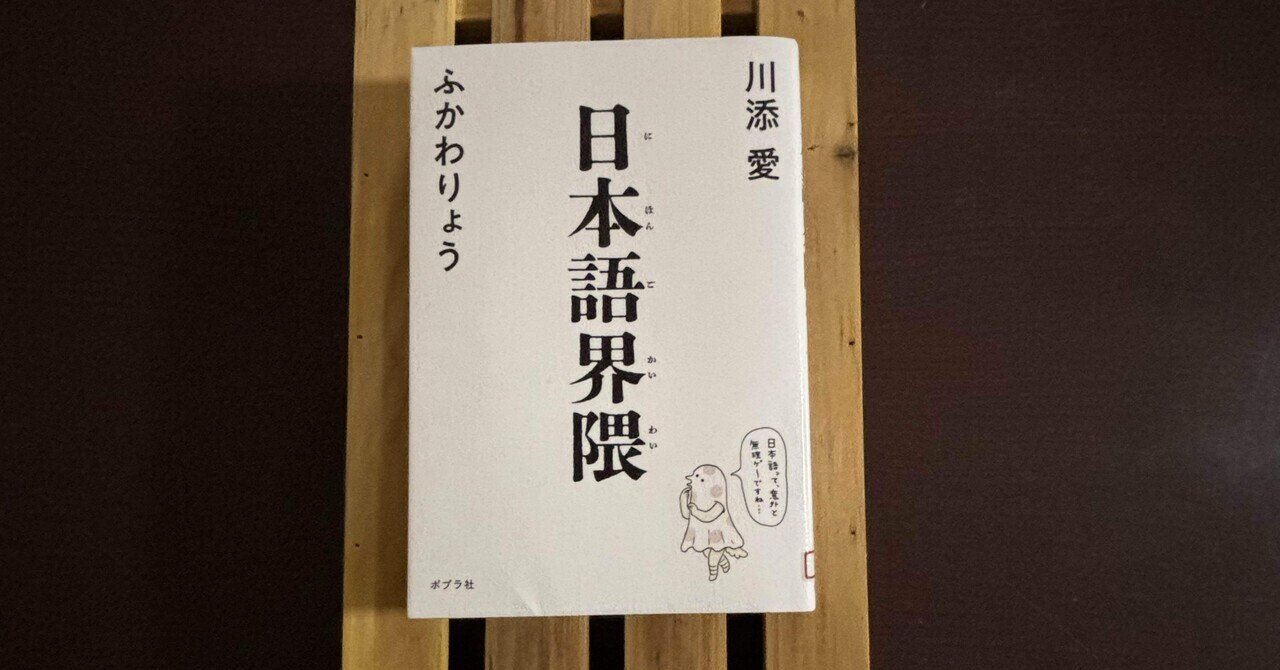 川添 愛
日本語界隈
に ほん ご かい わい
ふかわりょう
日本語って、意外と
無理ゲーですね…
ポプラ社